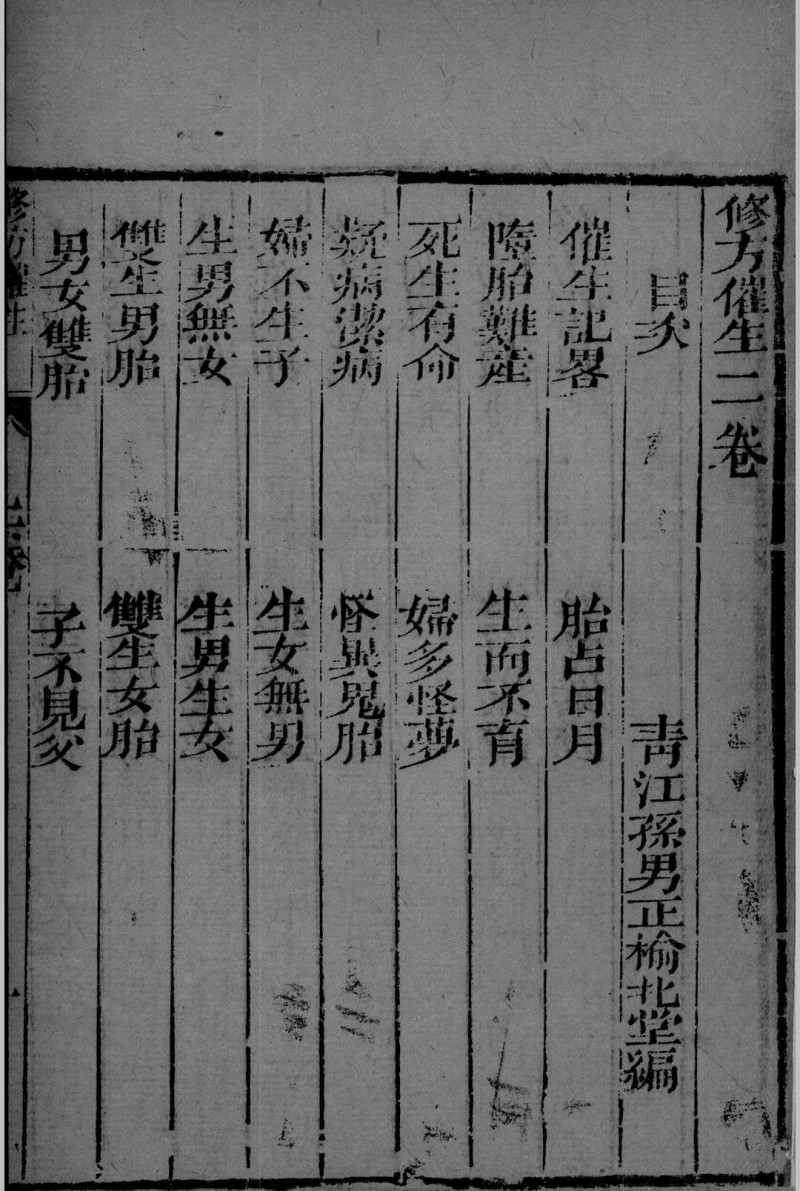 修方催生二卷
目次
青江孫男正榆北堂編
催生記畧
胎占日月
墮胎難産
生而不育
死生有命
婦多怪夢
疑病潔病
怪異鬼胎
婦不生子
生女無男
生男無女
生男生女
雙生男胎
雙生女胎
男女雙胎
子不見父
修方催生